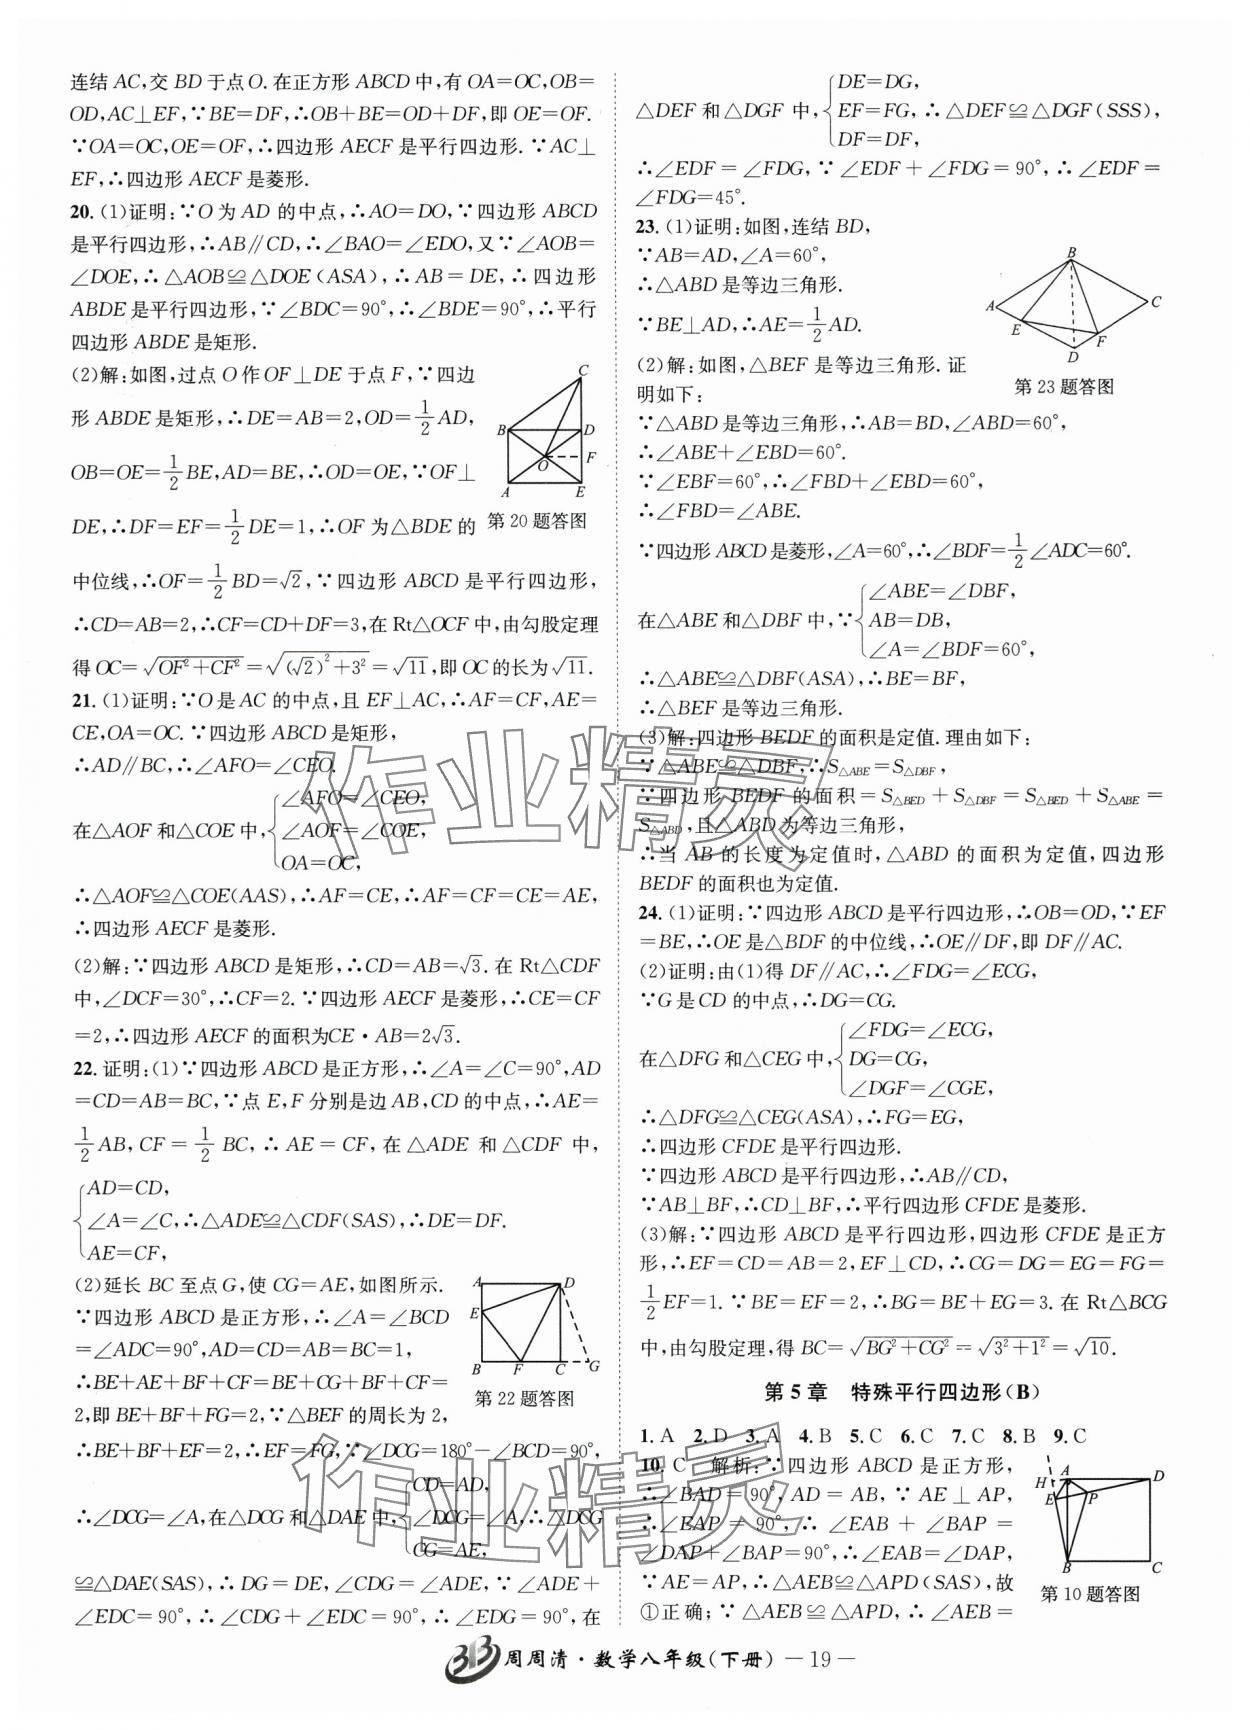 连结 AC,交 BD 于点 O. 在正方形 ABCD 中,有 OA=OC,OB=
OD,AC⊥EF,∵BE=DF,∴OB+BE=OD+DF,即 OE=OF.
∵OA=OC,OE=OF,∴四边形 AECF 是平行四边形. ∵AC⊥
EF,∴四边形 AECF 是菱形.
20. (1)证明:∵O 为 AD 的中点,∴AO=DO,∵四边形 ABCD
是平行四边形,∴AB∥CD,∴∠BAO=∠EDO,又∵∠AOB=
∠DOE,∴△AOB≌△DOE(ASA),∴AB=DE,∴四边形
ABDE 是平行四边形,∵∠BDC=90°,∴∠BDE=90°,∴平行
四边形 ABDE 是矩形.
(2)解:如图,过点 O 作 OF⊥DE 于点 F,∵四边
形 ABDE 是矩形,∴DE=AB=2,OD=1/2AD,
OB=OE=1/2BE,AD=BE,∴OD=OE,∵OF⊥
DE,∴DF=EF=1/2DE=1,∴OF 为△BDE 的
中位线,∴OF=1/2BD=√2,∵四边形 ABCD 是平行四边形,
∴CD=AB=2,∴CF=CD+DF=3,在 Rt△OCF 中,由勾股定理
得 OC=√(OF²+CF²)=√((√2)²+3²)=√11,即 OC 的长为√11.
C
B D
O F
A E
第 20 题答图
21. (1)证明:∵O 是 AC 的中点,且 EF⊥AC,∴AF=CF,AE=
CE,OA=OC. ∵四边形 ABCD 是矩形,
∴AD∥BC,∴∠AFO=∠CEO.
在△AOF 和△COE 中,{∠AFO=∠CEO,
∠AOF=∠COE,
OA=OC,
∴△AOF≌△COE(AAS),∴AF=CE,∴AF=CF=CE=AE,
∴四边形 AECF 是菱形.
(2)解:∵四边形 ABCD 是矩形,∴CD=AB=√3. 在 Rt△CDF
中,∠DCF=30°,∴CF=2. ∵四边形 AECF 是菱形,∴CE=CF
=2,∴四边形 AECF 的面积为CE·AB=2√3.
22. 证明:(1)∵四边形 ABCD 是正方形,∴∠A=∠C=90°,AD
=CD=AB=BC,∵点 E,F 分别是边 AB,CD 的中点,∴AE=
1/2AB,CF=1/2BC,∴AE=CF,在△ADE 和△CDF 中,
{AD=CD,
∠A=∠C,∴△ADE≌△CDF(SAS),∴DE=DF.
AE=CF,
(2)延长 BC 至点 G,使 CG=AE,如图所示.
∵四边形 ABCD 是正方形,∴∠A=∠BCD
=∠ADC=90°,AD=CD=AB=BC=1,
∴BE+AE+BF+CF=BE+CG+BF+CF=
2,即 BE+BF+FG=2,∵△BEF 的周长为 2,
∴BE+BF+EF=2,∴EF=FG,∵∠DCG=180°−∠BCD=90°,
A D
E
B F C G
第 22 题答图
∴∠DCG=∠A,在△DCG 和△DAE 中,{CD=AD,
∠DCG=∠A,∴△DCG
CG=AE,
≌△DAE(SAS),∴DG=DE,∠CDG=∠ADE,∵∠ADE+
∠EDC=90°,∴∠CDG+∠EDC=90°,∴∠EDG=90°,在
△DEF 和△DGF 中,{DE=DG,
EF=FG,∴△DEF≌△DGF(SSS),
DF=DF,
∴∠EDF=∠FDG,∵∠EDF+∠FDG=90°,∴∠EDF=
∠FDG=45°.
23. (1)证明:如图,连结 BD,
∵AB=AD,∠A=60°,
∴△ABD 是等边三角形.
∵BE⊥AD,∴AE=1/2AD.
(2)解:如图,△BEF 是等边三角形. 证
明如下:
B
A C
E F
D
第 23 题答图
∵△ABD 是等边三角形,∴AB=BD,∠ABD=60°,
∴∠ABE+∠EBD=60°,
∵∠EBF=60°,∴∠FBD+∠EBD=60°,
∴∠FBD=∠ABE.
∵四边形 ABCD 是菱形,∠A=60°,∴∠BDF=1/2∠ADC=60°.
在△ABE 和△DBF 中,∵{∠ABE=∠DBF,
AB=DB,
∠A=∠BDF=60°,
∴△ABE≌△DBF(ASA),∴BE=BF,
∴△BEF 是等边三角形.
(3)解:四边形 BEDF 的面积是定值. 理由如下:
∵△ABE≌△DBF,∴S△ABE=S△DBF,
∵四边形 BEDF 的面积=S△BED+S△DBF=S△BED+S△ABE=
S△ABD,且△ABD 为等边三角形,
∴当 AB 的长度为定值时,△ABD 的面积为定值,四边形
BEDF 的面积也为定值.
24. (1)证明:∵四边形 ABCD 是平行四边形,∴OB=OD,∵EF
=BE,∴OE 是△BDF 的中位线,∴OE∥DF,即 DF∥AC.
(2)证明:由(1)得 DF∥AC,∴∠FDG=∠ECG,
∵G 是 CD 的中点,∴DG=CG.
在△DFG 和△CEG 中,{∠FDG=∠ECG,
DG=CG,
∠DGF=∠CGE,
∴△DFG≌△CEG(ASA),∴FG=EG,
∴四边形 CFDE 是平行四边形.
∵四边形 ABCD 是平行四边形,∴AB∥CD,
∵AB⊥BF,∴CD⊥BF,∴平行四边形 CFDE 是菱形.
(3)解:∵四边形 ABCD 是平行四边形,四边形 CFDE 是正方
形,∴EF=CD=AB=2,EF⊥CD,∴CG=DG=EG=FG=
1/2EF=1. ∵BE=EF=2,∴BG=BE+EG=3. 在 Rt△BCG
中,由勾股定理,得 BC=√(BG²+CG²)=√(3²+1²)=√10.
第 5 章 特殊平行四边形(B)
1. A 2. D 3. A 4. B 5. C 6. C 7. C 8. B 9. C
10. C 解析:∵四边形 ABCD 是正方形,
∴∠BAD=90°,AD=AB,∵AE⊥AP,
∴∠EAP=90°,∴∠EAB+∠BAP=
∠DAP+∠BAP=90°,∴∠EAB=∠DAP,
∵AE=AP,∴△AEB≌△APD(SAS),故
①正确;∵△AEB≌△APD,∴∠AEB=
H A D
E P
B C
第 10 题答图
作业精灵
作业精灵
周周清·数学八年级(下册) —19—